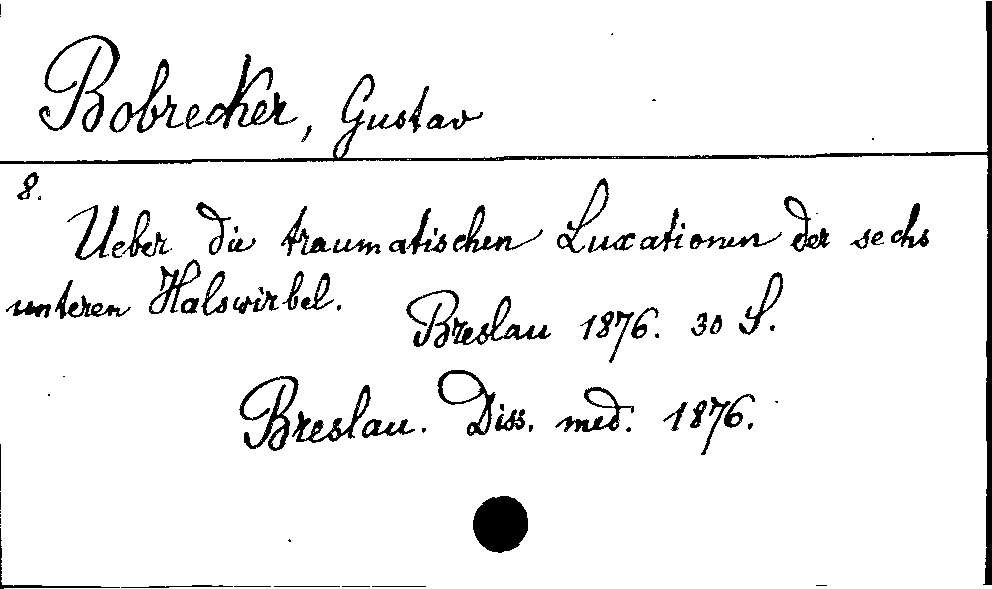 Bobrecker, Gustav
8.
Ueber die traumatischen Luxationen der sechs
unteren Halswirbel.
Breslau 1876. 30 S.
Breslau. Diss. med. 1876.